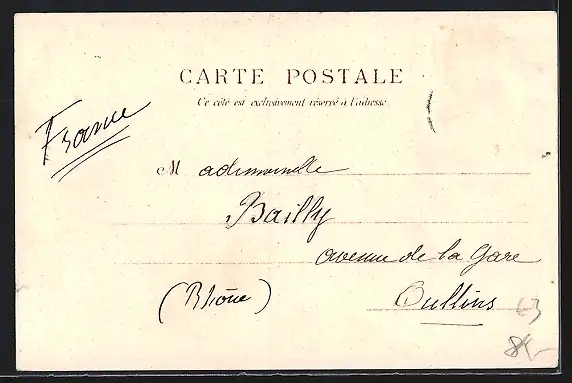 CARTE POSTALE
Ce côté est exclusivement réservé à l'adresse
France
Mademoiselle
Bailly
avenue de la Gare
(Rhône) Oullins
63